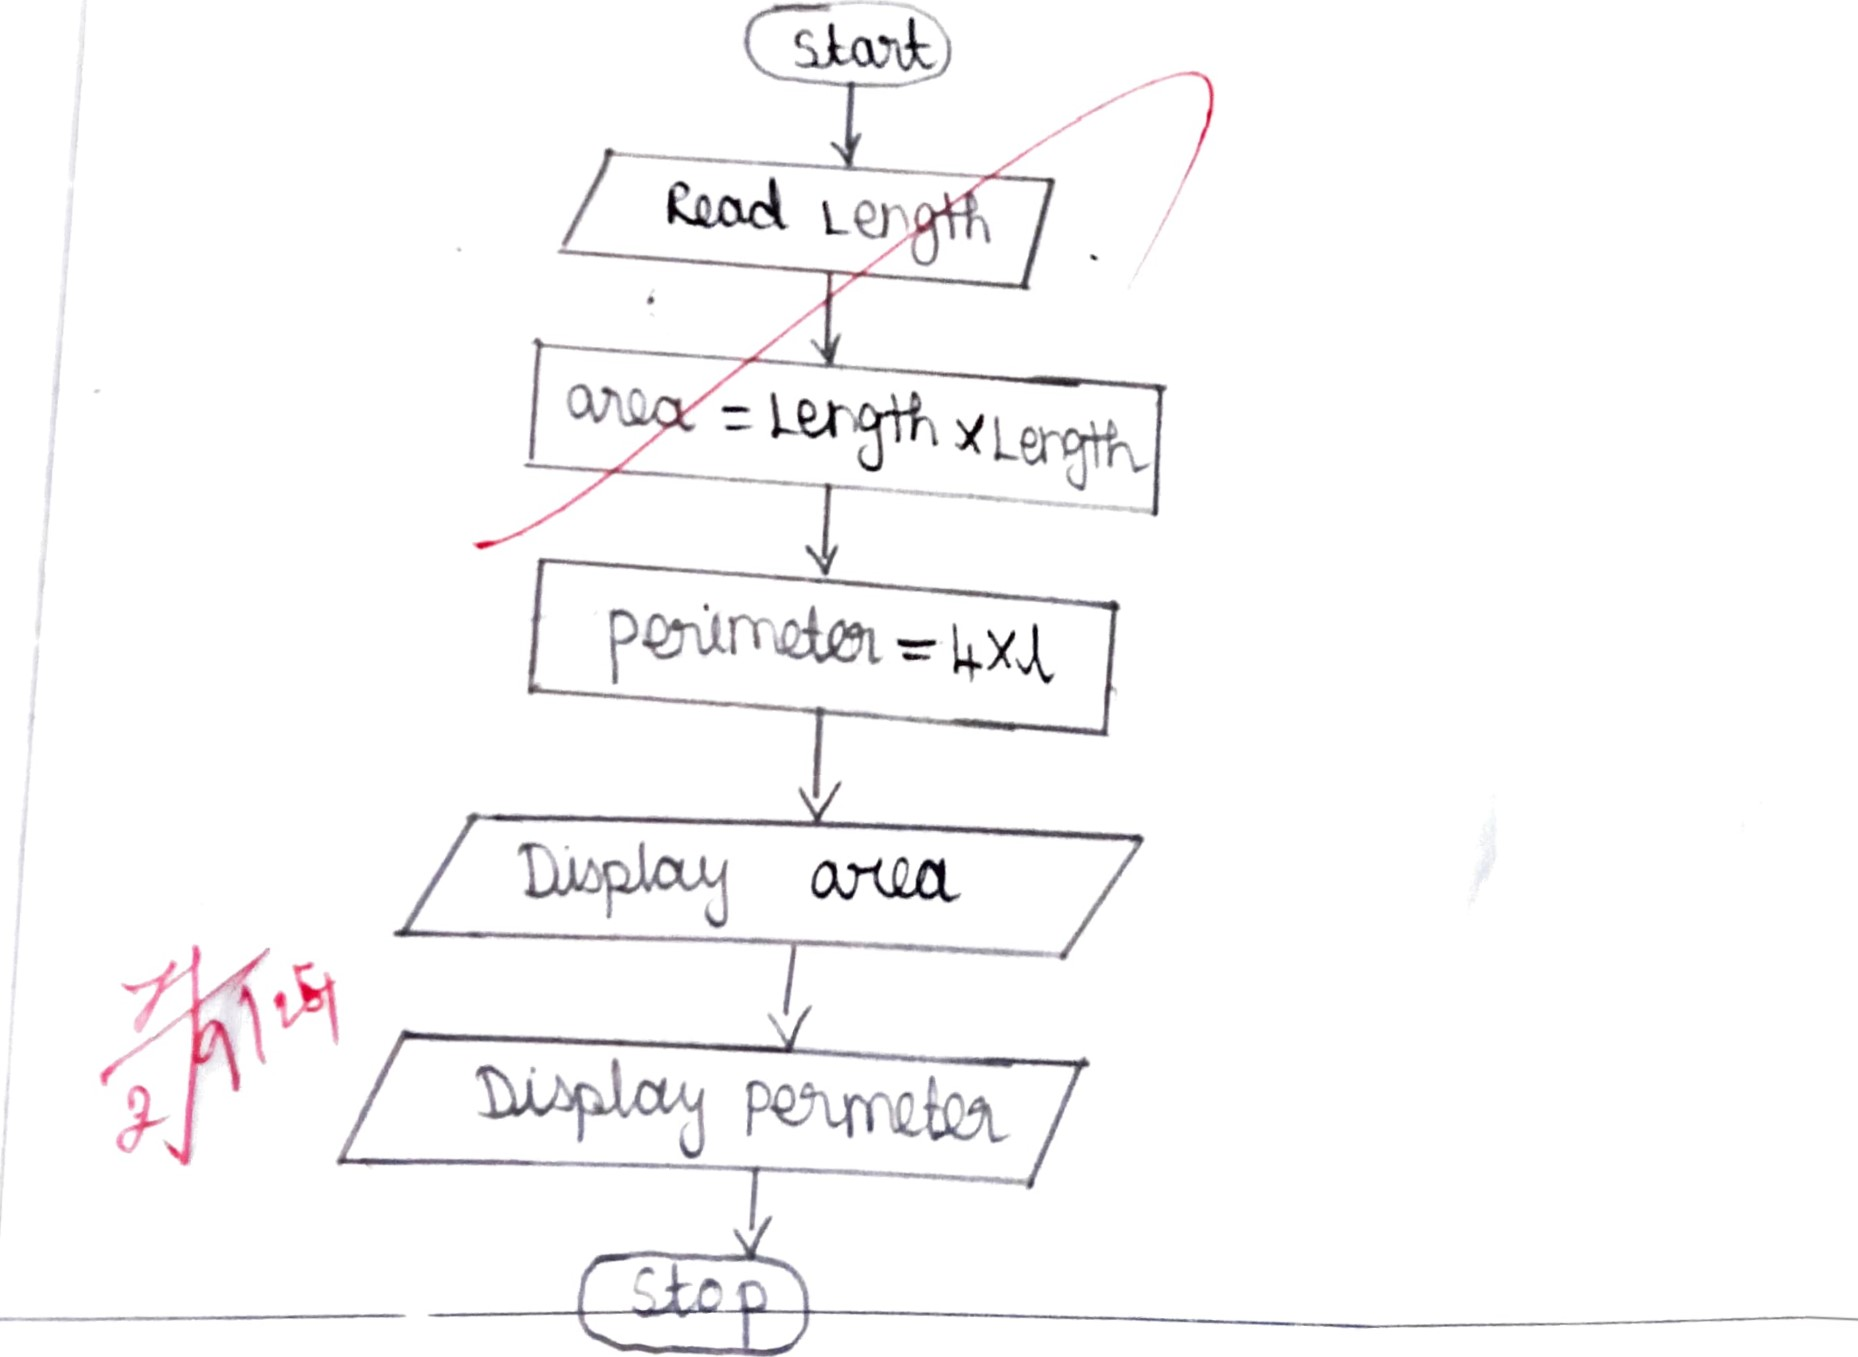 Start
Read Length
area = Length x Length
perimeter = 4xl
Display area
Display permeter
Stop